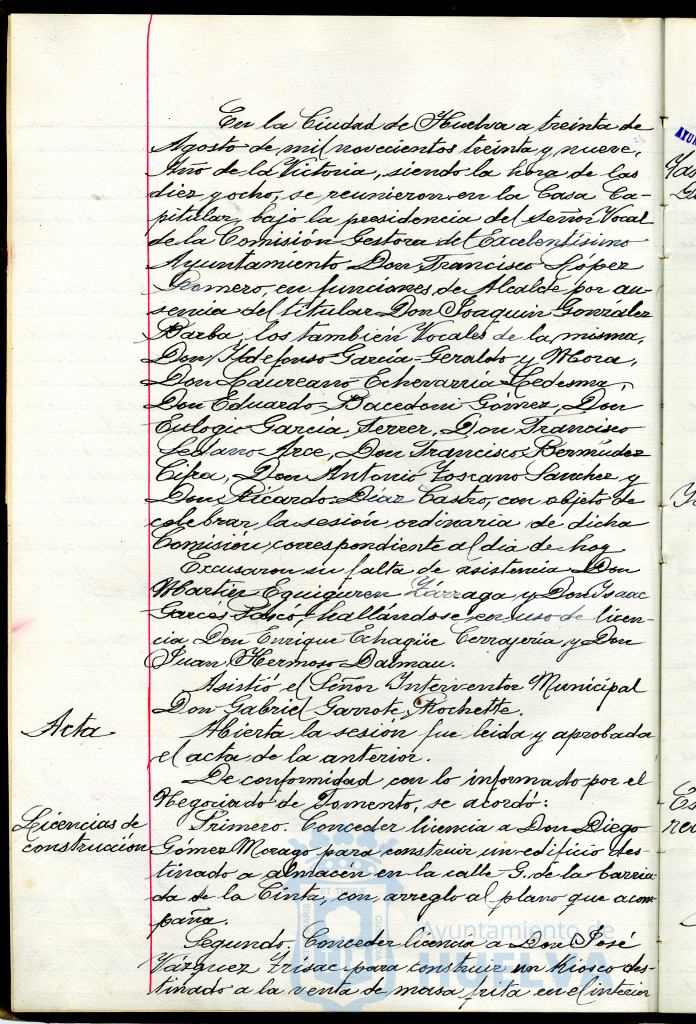 En la Ciudad de Huelva a treinta de
Agosto de mil novecientos treinta y nueve,
Año de la Victoria, siendo la hora de las
diez y ocho, se reunieron en la Casa Ca-
pitular, bajo la presidencia del señor Vocal
de la Comisión Gestora del Excelentísimo
Ayuntamiento Don Francisco López
Romero, en funciones de Alcalde por au-
sencia del titular Don Joaquin González
Barba, los también Vocales de la misma,
Don Ildefonso García-Geraldo y Mora,
Don Laureano Echevarría Ledesma,
Don Eduardo Bacedoni Gómez, Don
Eulogio García Ferrer, Don Francisco
Sedano Arce, Don Francisco Bermudez
Cifra, Don Antonio Toscano Sanchez y
Don Ricardo Diaz Castro, con objeto de
celebrar la sesión ordinaria de dicha
Comisión, correspondiente al dia de hoy
Excusaron su falta de asistencia Don
Martier Eguiguren Lárraga y Don Isaac
Garcés hallándose en uso de licen-
cia, Don Enrique Echagüe Cerrajería y Don
Juan Hermoso Dalmau.
Asistió el Señor Interventor Municipal
Don Gabriel Garrote Rochette.
Acta
Abierta la sesión fue leida y aprobada
el acta de la anterior.
De conformidad con lo informado por el
Negociado de Fomento, se acordó:
Licencias de
construcción
Primero. Conceder licencia a Don Diego
Gómez Morago para construir un edificio des-
tinado a almacén en la calle G. de la barria-
da de la Cinta, con arreglo al plano que acom-
paña.
Segundo. Conceder licencia a Don José
Vázquez para construir un Kiosco des-
tinado a la venta de masa frita en el interior
Ayuntamiento de
HUELVA